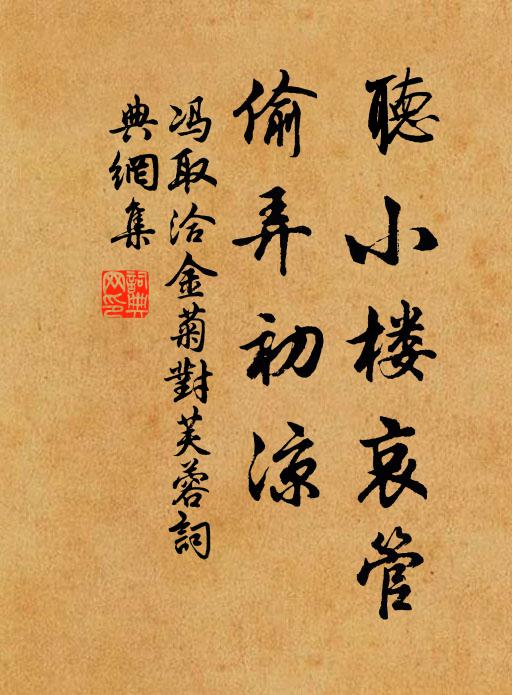 聽小楼哀管
偷弄初凉
冯取洽金菊對芙蓉詞
典網集
詞典网印